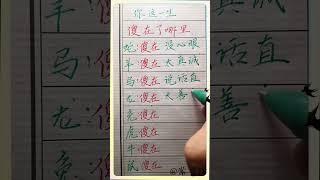 你这一生
傻在了哪里
蛇:傻在 没心眼
羊:傻在 太真诚
马:傻在 说话直
龙:傻在 太善
兔:傻在
虎:傻在
牛:傻在
鼠:傻在